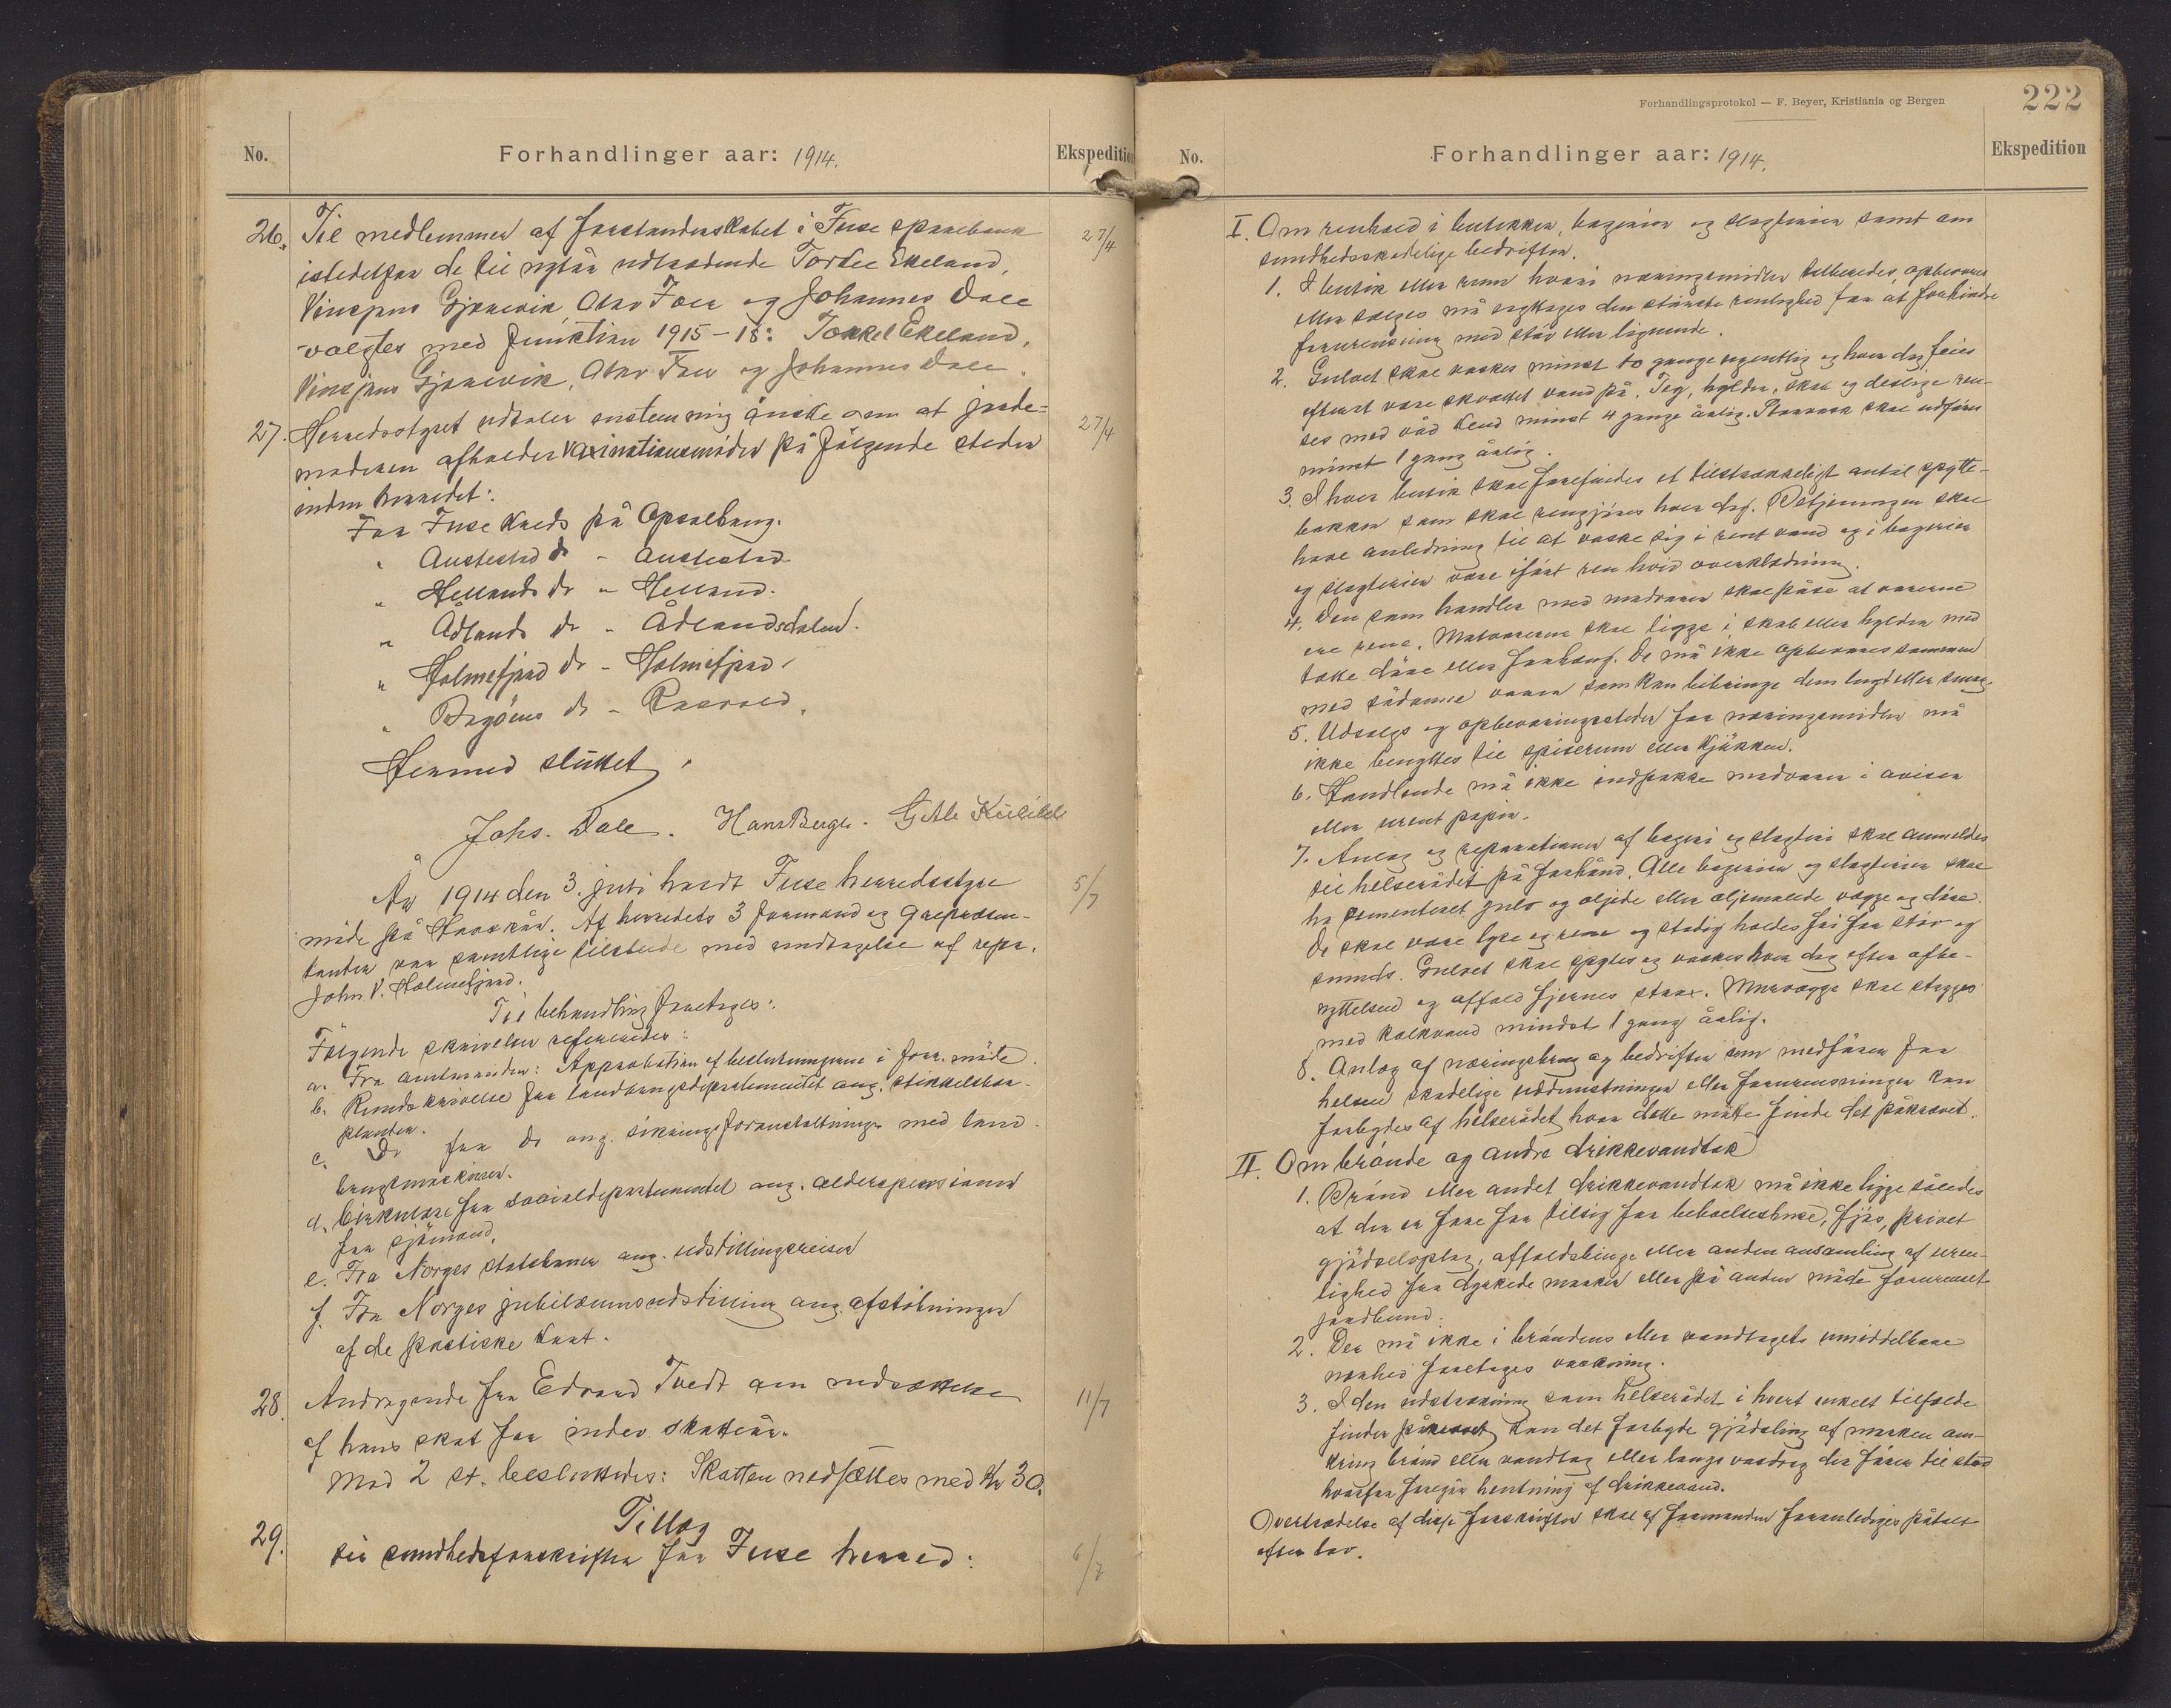 No.
Forhandlinger aar: 1914.
Ekspedition
26. Til medlemmer af forstanderskabet i Fuse sparebank 27/4
istedetfor de til nytår udtrædende Torkel Ekeland,
Vinsjans Gjønevik, Olav Før og Johannes Dale
valgtes med funktion 1915-18: Torkel Ekeland,
Vinsjans Gjønevik, Olav Før og Johannes Dale.
27. Herredsstyret udtaler enstemmig ønske om at jorde= 27/4
moderen afholder vaxinationsmøder på følgende steder
inden herredet:
For Fuse kreds på Opsalhaug.
" Austestad do - Austestad
" Hellands do - Helland.
" Ådlands do - Ådlandsdalen.
" Holmefjord do - Holmefjord.
" Bogøens do -
Hermed sluttet.
Johs. Dale. Hans Berge. Gitle Kilen
År 1914 den 3. juli holdt Fuse herredsstyre 5/7
møde på Haaskår. Af herredets 3 formænd og 9 repræsen-
tanter var samtlige tilstede med undtagelse af repr.
John V. Holmefjord.
Til behandling foretages:
Følgende skrivelser refereredes:
a. Fra amtmanden: Approbation af beslutningerne i forr. møde.
b. Rundskrivelse fra landbrugsdepartementet ang. stikkelsbær-
planter.
c. Do fra do ang. sikringsforanstaltninger med land-
brugsmaskiner.
d. Cirkulære fra socialdepartementet ang. alderspensionen
for sjømænd.
e. Fra Norges statsbaner ang. udstillingsreiser
f. Fra Norges jubilæumsudstilling ang. afstøbninger
af de plastiske kart.
28. Andragende fra Edvard Tvedt om nedsættelse 11/7
af hans skat for indev. skatteår.
Mod 2 st. besluttedes: Skatten nedsættes med Kr 30.
29. Tillæg
til sundhedsforskrifter for Fuse herred: 6/7
Forhandlingsprotokol — F. Beyer, Kristiania og Bergen
222
No.
Forhandlinger aar: 1914.
Ekspedition
I. Om renhold i butikker, bagerier og slagterier samt om
sundhedsskadelige bedrifter.
1. I butik eller rum hvori næringsmidler tilberedes, opbevares
eller sælges må iagttages den største renlighed for at forhindre
forurensning med støv eller lignende.
2. Gulvet skal vaskes mindst to gange ugentlig og hver dag feies
efterat være skvættet vand på. Tag, hylder, skal og deslige ren-
ses med våd klud minst 4 gange årlig. Storvask skal udføres
minst 1 gang årlig.
3. I hver butik skal forefindes et tilstrækkeligt antal spytte-
bakker som skal rengjøres hver dag. Betjeningen skal
have anledning til at vaske sig i rent vand og i bagerier
og slagterier være iført ren hvid overklædning.
4. Den som handler med madvarer skal påse at varerne
ere rene. Matvarerne skal ligge i skab eller hylder med
tætte døre eller forhæng. De må ikke opbevares sammen
med sådanne varer som kan bibringe dem lugt eller smag.
5. Udsalgs og opbevaringssteder for næringsmidler må
ikke benyttes til spiserum eller kjøkken.
6. Handlende må ikke indpakke madvarer i aviser
eller urent papir.
7. Anlæg og reparationer af bageri og slagteri skal anmeldes
til helserådet på forhånd. Alle bagerier og slagterier skal
ha sementeret gulv og oljede eller oljemalede vægge og døre.
De skal være lyse og rene og stadig holdes fri for støv og
smuds. Gulvet skal spyles og vaskes hver dag efter afbe-
nyttelsen og affald fjernes strax. Murvægge skal strygges
med kalkvand mindst 1 gang årlig.
8. Anlæg af næringsbrug og bedrifter som medfører for
helsen skadelige uddunstninger eller forurensninger kan
forbydes af helserådet hvor dette måtte finde det påkrævet.
II. Om brønde og andre drikkevandtak
1. Brønd eller andet drikkevandtak må ikke ligge således
at der er fare for tilsig fra beboelseshuse, fjøs, privet
gjødselsoplag, affaldsbinge eller anden ansamling af uren-
lighed fra dyrkede marker eller på anden måde forurenset
jordbund.
2. Der må ikke i brøndens eller vandtagets umiddelbare
nærhed foretages vaskning.
3. I den udstrækning som helserådet i hvert enkelt tilfælde
finder påkrævet kan det forbyde gjødsling af marken om-
kring brønd eller vandtag eller langs vasdrag der fører til sted
hvorfra foregår hentning af drikkevand.
Overtrædelse af disse forskrifter skal af formanden foranlediges påtalt
efter lov.